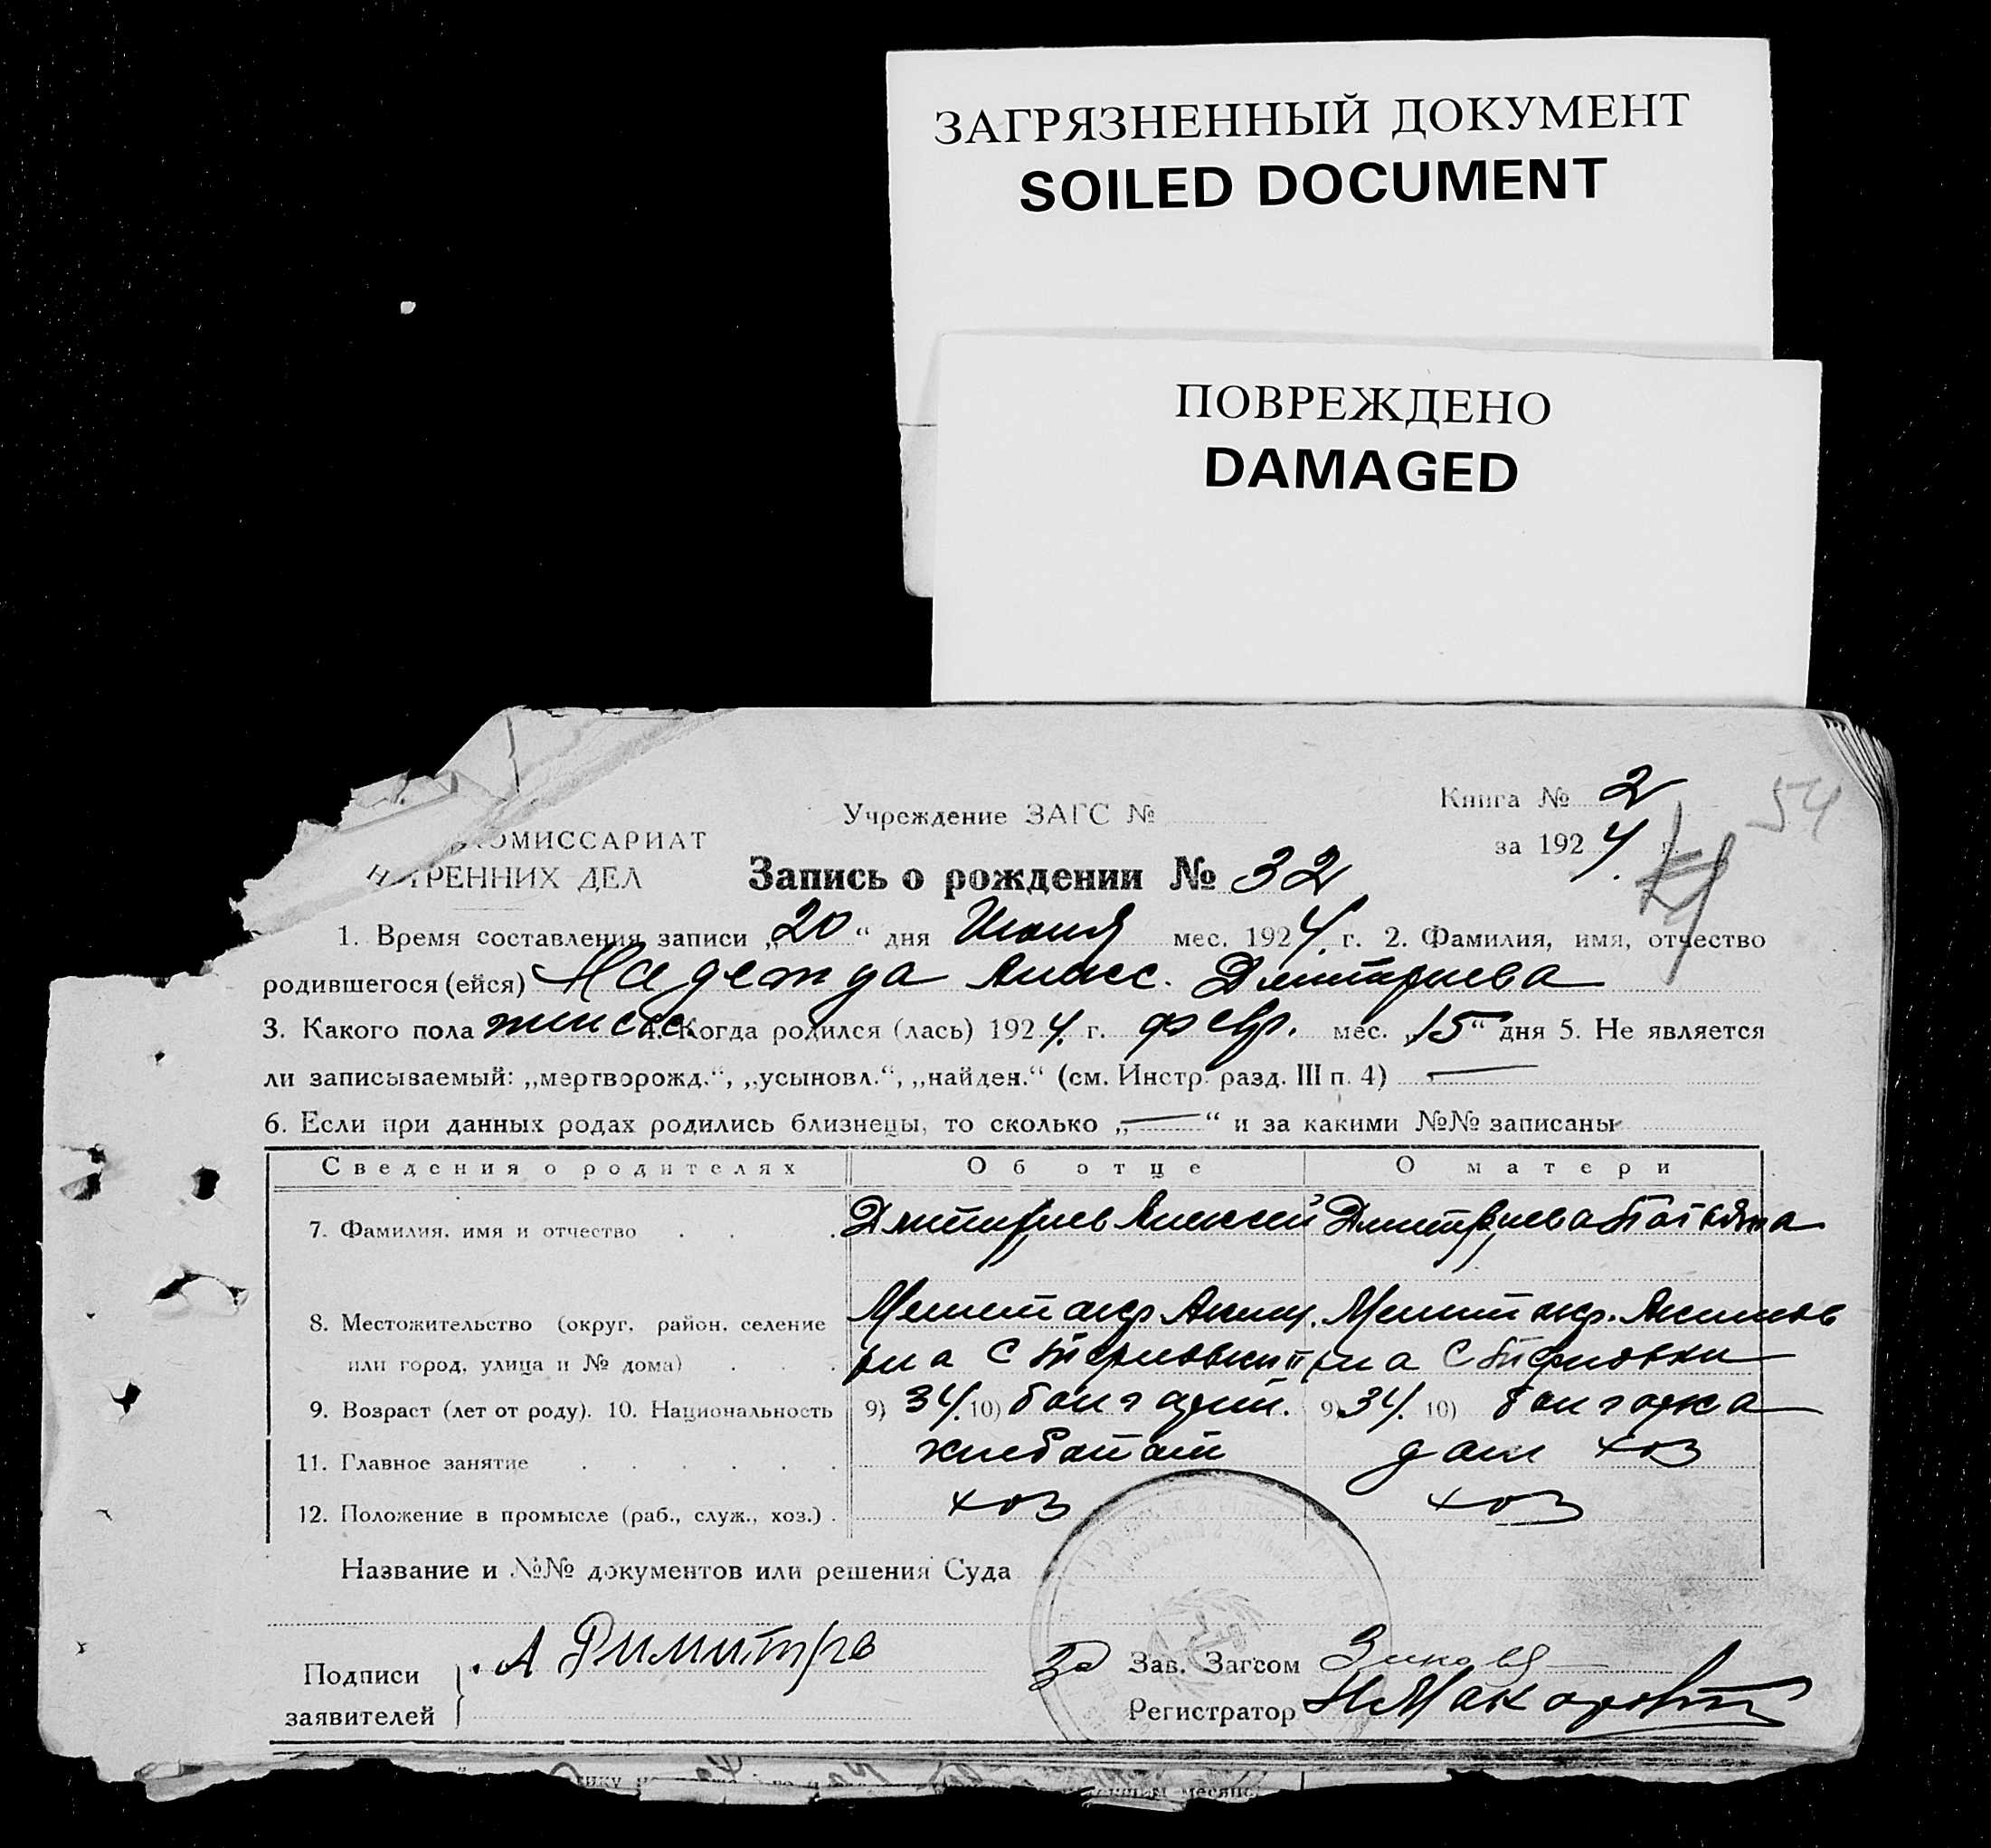 ЗАГРЯЗНЕННЫЙ ДОКУМЕНТ
SOILED DOCUMENT
ПОВРЕЖДЕНО
DAMAGED
Книга № 2
54
Учреждение ЗАГС №
за 1924 г.
ОМИССАРИАТ
ТРЕННИХ ДЕЛ
Запись о рождении № 32
1. Время составления записи „20“ дня Июня мес. 1924 г. 2. Фамилия, имя, отчество
родившегося (ейся) Надежда Алекс. Дмитриева
3. Какого пола женск. 4. Когда родился (лась) 1924 г. февр. мес. „15“ дня 5. Не является
ли записываемый: „мертворожд.“, „усыновл.“, „найден.“ (см. Инстр. разд. III п. 4) —
6. Если при данных родах родились близнецы, то сколько „—“ и за какими №№ записаны
Сведения о родителях Об отце О матери
7. Фамилия, имя и отчество Дмитриев Алексей Дмитриева Татьяна
8. Местожительство (округ, район, селение Мелит окр Аким. Мелит окр. Акимов
или город, улица и № дома) рна с Терновки рна с Терновки
9. Возраст (лет от роду). 10. Национальность 9) 34. 10) болгарин. 9) 34. 10) болгарка
11. Главное занятие хлебопаш дом хоз
12. Положение в промысле (раб., служ., хоз.) хоз хоз
Название и №№ документов или решения Суда
Подписи заявителей А Димитрв
За Зав. Загсом
Регистратор